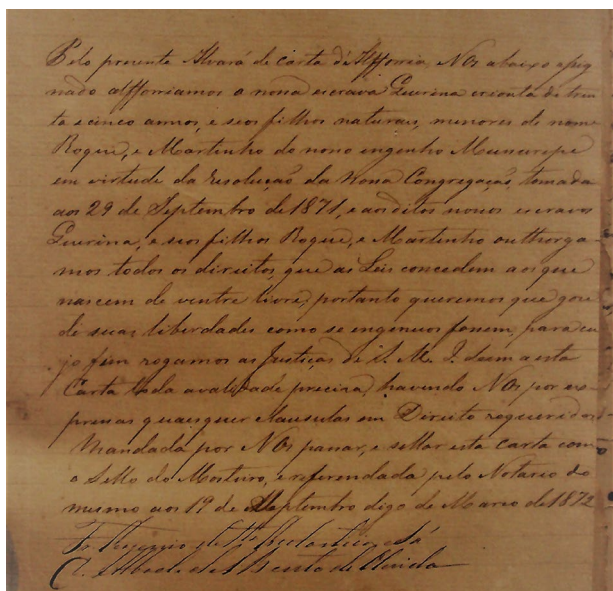 Pelo presente Alvará de Carta d'Alfforria, Nós abaixo assig
nado alfforriamos a nossa escrava Querina creoula de trin
ta e cinco annos, e seos filhos naturaes, menores de nome
Roque, e Martinho do nosso engenho Mussurepe
em virtude da resolução da Nossa Congregação, tomada
aos 29 de Septembro de 1871, e aos ditos nossos escravos
Querina, e seos filhos Roque, e Martinho outhorga
mos todos os direitos, que as Leis concedem aos que
nascem de ventre livre, portanto queremos que gose
de suas liberdades como se ingenuos fossem, para cu
jo fim rogamos as Justiças de S. M. I. deem a esta
Carta toda a validade precisa, havendo Nós por ex
pressas quaesquer clausulas em Direito requeridas
Mandada por Nós passar, e sellar esta carta com
o Sello do Mosteiro, e referendada pelo Notario do
mesmo aos 19 de Septembro digo de Março de 1872
Fr.
D. Abbade de S. Bento de Olinda